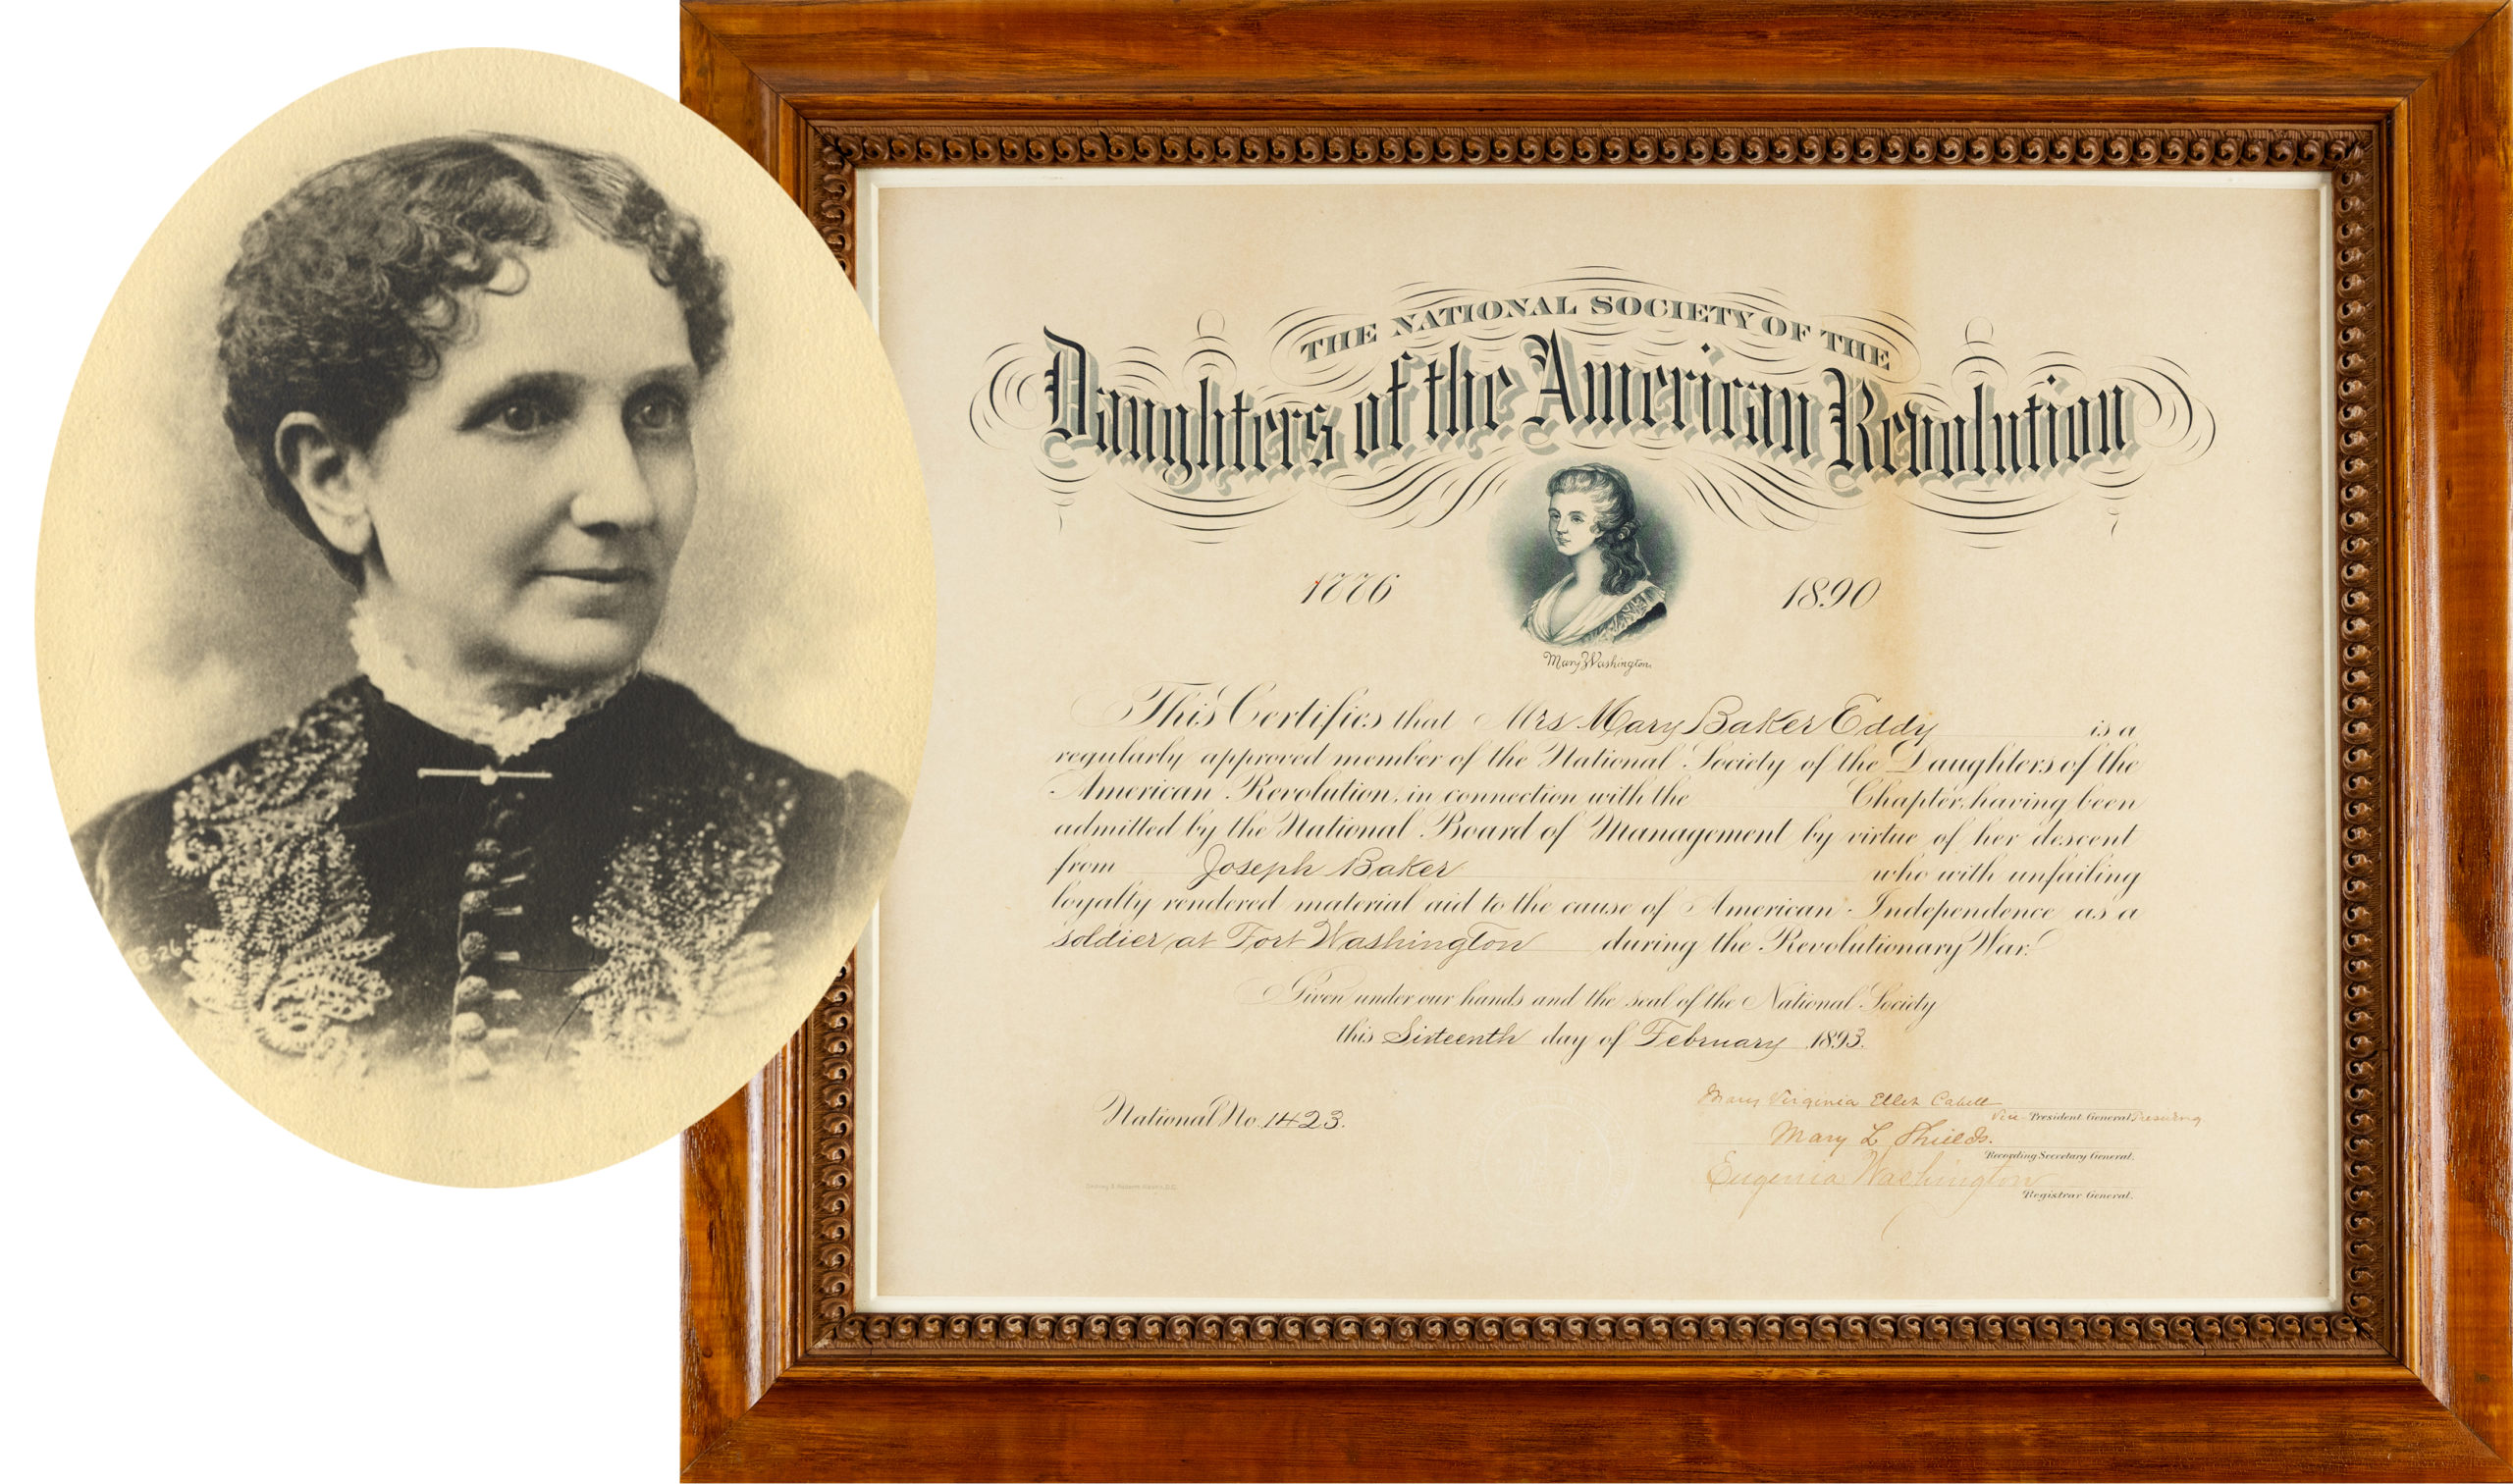 THE NATIONAL SOCIETY OF THE
Daughters of the American Revolution
1776
1890
Mary Washington.
This Certifies that Mrs Mary Baker Eddy is a
regularly approved member of the National Society of the Daughters of the
American Revolution, in connection with the Chapter, having been
admitted by the National Board of Management by virtue of her descent
from Joseph Baker who with unfailing
loyalty rendered material aid to the cause of American Independence as a
soldier at Fort Washington during the Revolutionary War.
Given under our hands and the seal of the National Society
this Sixteenth day of February 1893.
National No. 1423.
Mary Virginia Ellet Cabell
Vice President General Presiding
Mary L Shields.
Recording Secretary General.
Eugenia Washington
Registrar General.